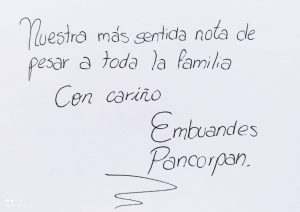 Nuestra más sentida nota de
pesar a toda la familia
Con cariño
Embuandes
Pancorpan.